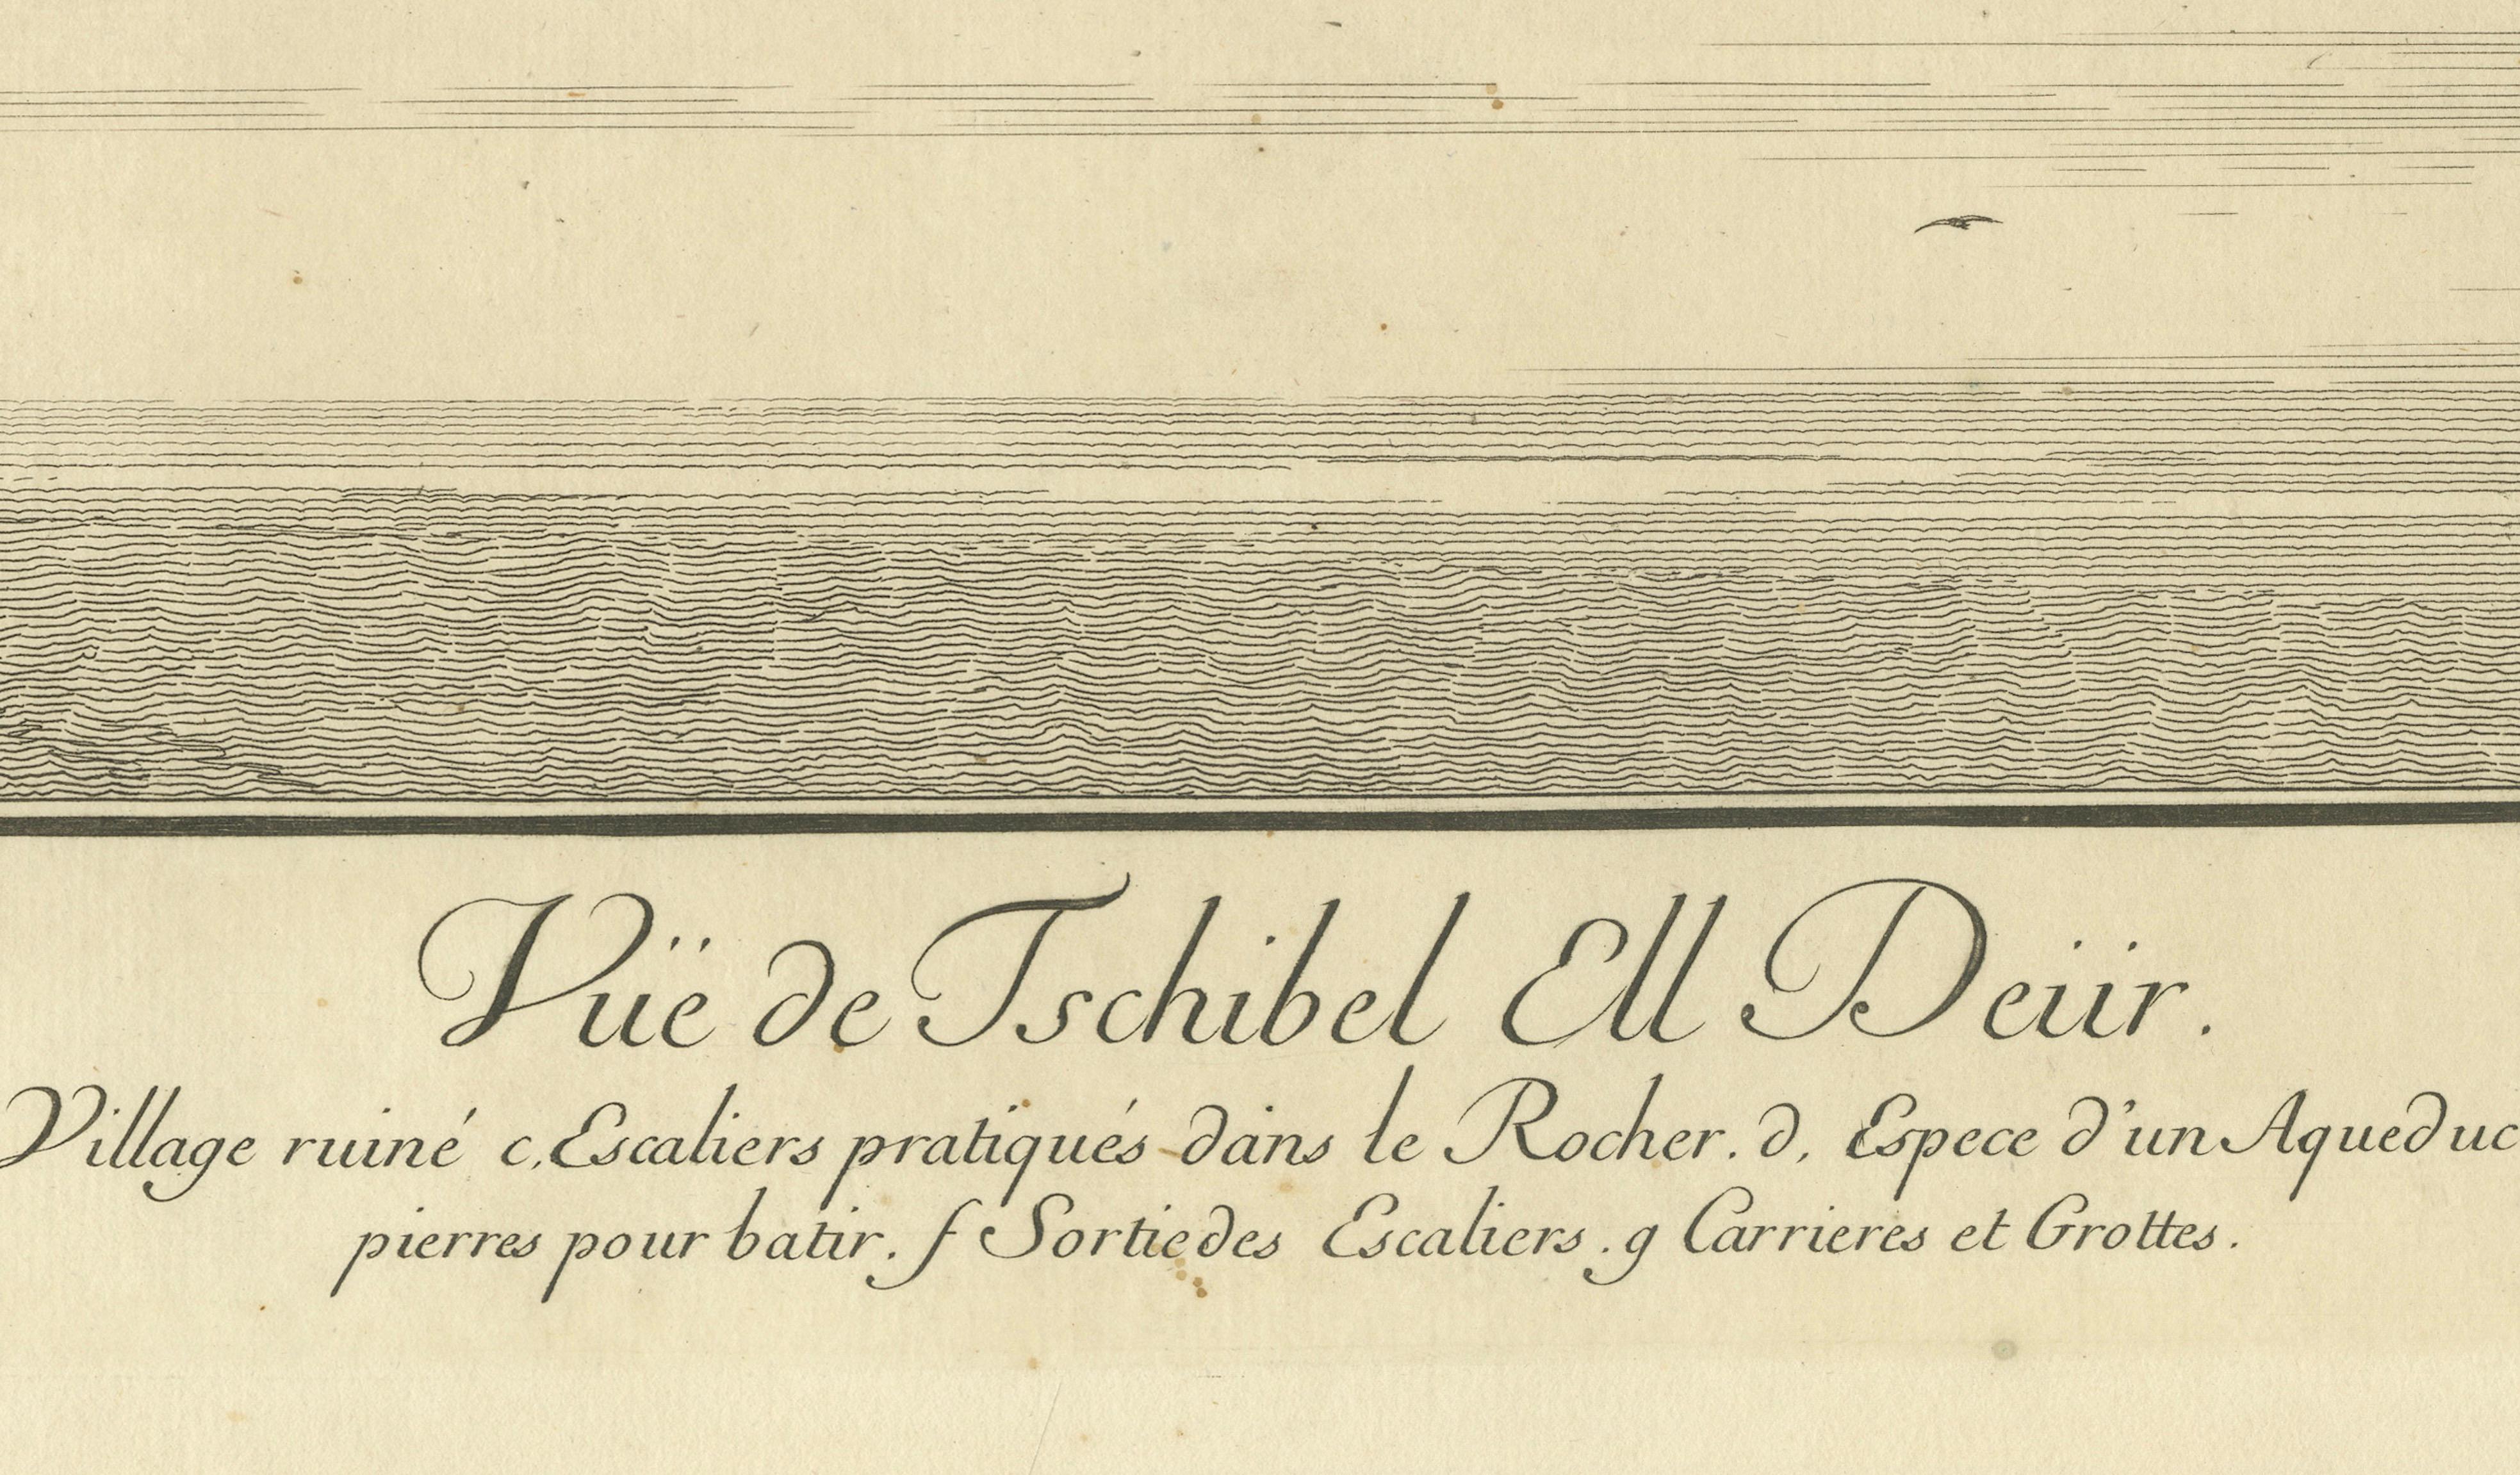 Vüe de Tschibel Ell Deiir.
Village ruiné c, Escaliers pratiqués dans le Rocher. d, Espece d'un Aqueduc
pierres pour batir. f Sortie des Escaliers. g Carrieres et Grottes.